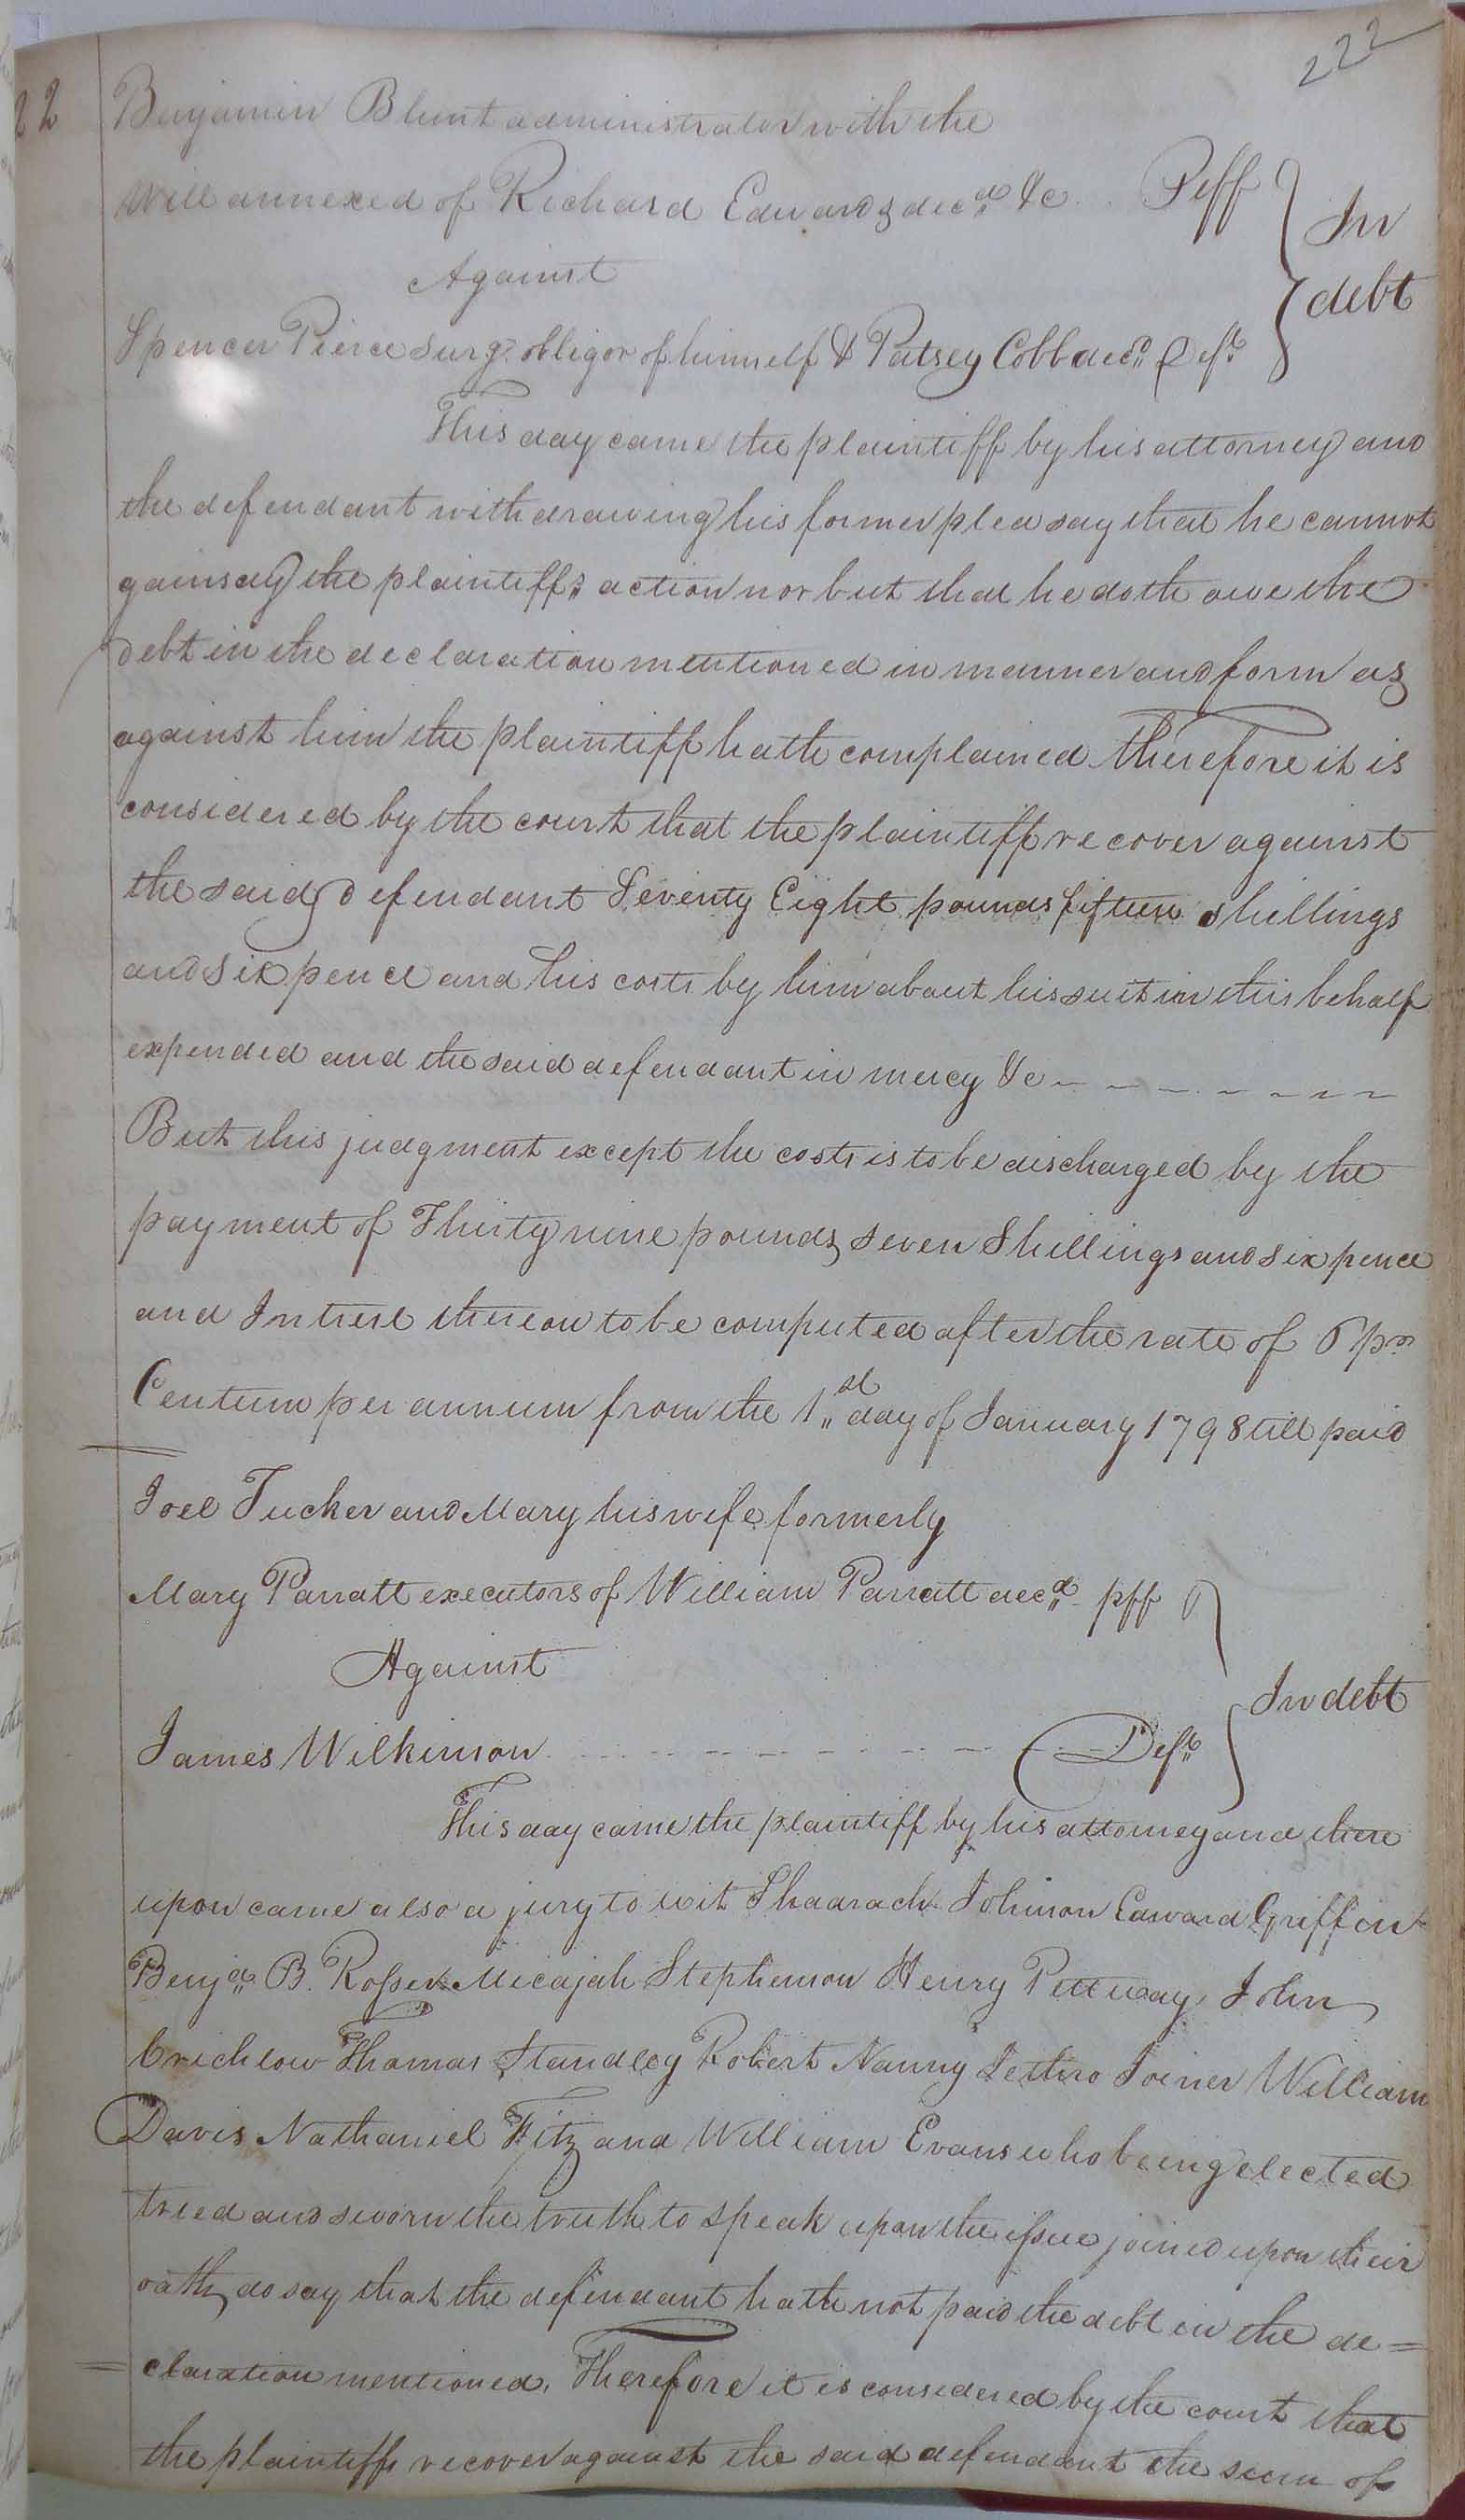 222
22
Benjamin Blunt administrator with the
Will annexed of Richard Edwards decd. &c .. Plff
In
Against
debt
Spencer Pierce surg. obligor of himself & Patsey Cobb decd. Deft.
This day came the plaintiff by his attorney and
the defendant withdrawing his former plea say that he cannot
gainsay the plaintiffs action nor but that he doth owe the
debt in the declaration mentioned in manner and form as
against him the plaintiff hath complained therefore it is
considered by the court that the plaintiff recover against
the said defendant Seventy Eight pounds fifteen shillings
and six pence and his costs by him about his suit in this behalf
expended and the said defendant in mercy &c - - - - - - - -
But this judgment except the costs is to be discharged by the
payment of Thirty nine pounds seven Shillings and six pence
and Intrest thereon to be computed after the rate of 6 pr.
Centum per annum from the 1st day of January 1798 till paid
Joel Tucker and Mary his wife formerly
Mary Parratt executors of William Parratt decd. pff
Against
In debt
James Wilkinson - - - - - - - - Deft.
This day came the plaintiff by his attorney and there
upon came also a jury to wit Shadrach Johnson Edward Griffin
Benja. B. Rosser Micajah Stephenson Henry Pettway, John
Crichlow Thomas Standley Robert Nanny Jethro Joiner William
Davis Nathaniel Fitz and William Evans who being elected
tried and sworn the truth to speak upon the issue joined upon their
oath do say that the defendant hath not paid the debt in the de=
=claration mentioned, Therefore it is considered by the court that
the plaintiffs recover against the said defendant the sum of